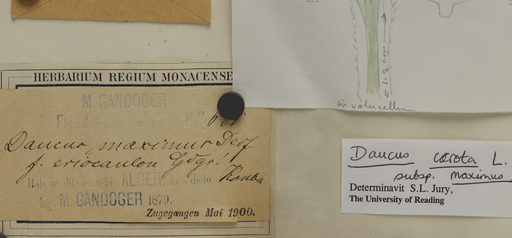 HERBARIUM REGIUM MONACENSE
M. GANDOGER
Daucus maximus Desf
f. eriocaulon Gdgr!
ALGER, loco dicto Kouba
Leg. M. GANDOGER 1879.
Zugegangen Mai 1900.
involucelle
Daucus carota L.
subsp. maximus
Determinavit S.L. Jury,
The University of Reading